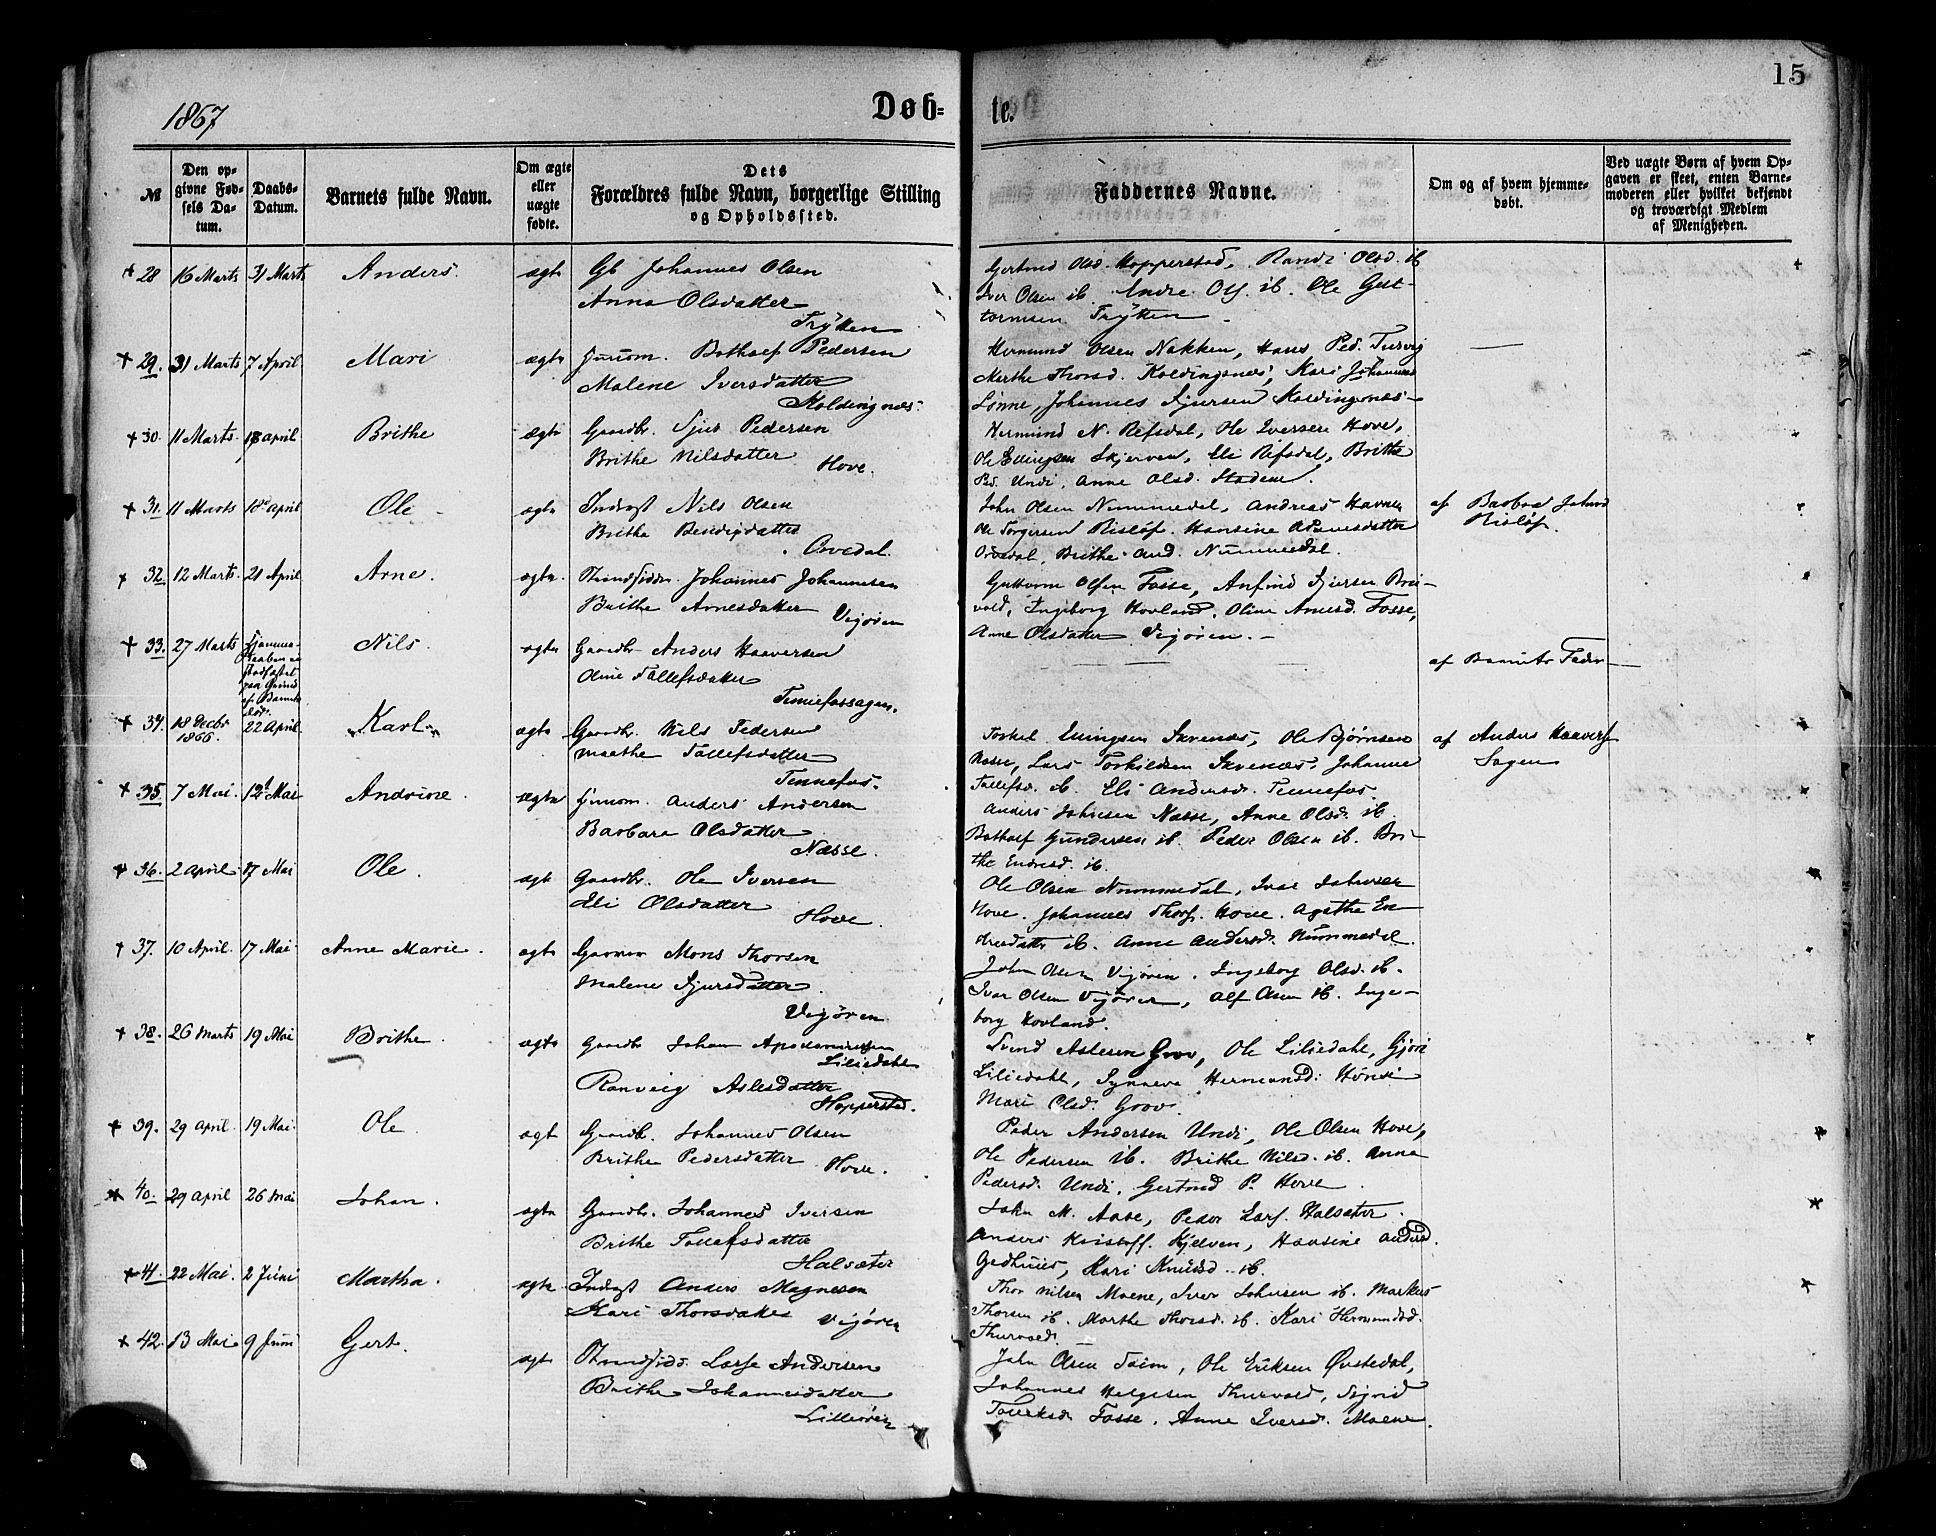 15
1867 Døb- te.
№ | Den opgivne Fødsels Datum. | Daabs-Datum. | Barnets fulde Navn. | Om ægte eller uægte fødte. | Dets Forældres fulde Navn, borgerlige Stilling og Opholdssted. | Faddernes Navne. | Om og af hvem hjemmedøbt. | Ved uægte Børn af hvem Opgaven er skeet, enten Barnemoderen eller hvilket bekjendt og troværdigt Medlem af Menigheden.
28 16 Marts 31 Marts Anders. ægte Gb Johannes Olsen
Anna Olsdatter
Trytten
Gertrud Olsd. Hopperstad, Randi Olsd. ib
Iver Olsen ib. Andre Ols. ib. Ole Gut-
tormsen Trytten
29. 31 Marts 7 April Mari ægte Botholf Pedersen
Malene Iversdatter
Holdingnæs.
Hermund Olsen Nakken, Hans Ped. Turvig
Marthe Thorsd. Koldingsnes, Kari Johannes
Lønne, Johannes Sjursen Koldingsnæs
30. 11 Marts. 18 april Brithe ægte Gaardbr. Sjur Pedersen
Brithe Nilsdatter Hove.
Hermund N. Refsdal, Ole Iversen Hove,
Ole Ellingsen Skjerven, Eli Refsdal, Brithe
Ped. Undi, Anne Olsd.
31. 11 Marts 18de april Ole ægte Inderst Nils Olsen
Brithe
Orvedal.
John Olsen Nummedal, Andreas Havnen
Ole Torgersen Risløf. Hansine
Orvedal, Brithe And. Nummedal.
af Barbra Johnsd
Risløf.
32. 12 Marts. 21 April Arne. ægte. Strandsidder. Johannes Johannesen
Brithe Arnesdatter Vejøren
Guttorm Olsen Fosse, Anfind Sjursen Bru-
vold, Ingeborg Hovland, Oline Arnesd. Fosse,
Anne Olsdatter Vejøren.
33. 27 Marts Hjemme-
daaben ei
stadfæstet
paa Grund
af Barnets
død. Nils. ægte Gaardbr Anders Haaversen
Oline Tollefsdatter
Tennefossagen.
af Barnets Fader
34. 18 Decbr
1866 22 April Karl ægte Gaardbr. Nils Pedersen
Marthe Tollefsdatter
Tennefos.
Torkel Ellingsen Skrenæs, Ole Bjørnsen
Næsse, Lars Torkildsen Skrenæs. Johanne
Tollefsd. ib. Eli Andersd. Tennefos
af Anders Haavers
Sagen
35 7 Mai. 12 Mai Andrine. ægte Anders Andersen
Barbara Olsdatter
Næsse.
Anders Johnsen Næsse, Anne Olsd. ib
Botholf Gundersen ib. Peder Olsen ib. Bri-
the Endresd. ib.
36. 2 April 17 Mai Ole. ægte Gaardbr. Ole Iversen
Eli Olsdatter
Hove.
Ole Olsen Nummedal, Ivar Johnsen
Hove. Johannes Thors. Hove. Agathe En-
dresdatter ib. Anne Andersd. Nummedal.
37. 10 April. 17 Mai Anne Marie. ægte Mons Thorsen
Malene Sjursdatter.
Vejøren
John Olsen Vejøren. Ingeborg Olsd. ib.
Ivar Olsen Vejøren, Alf Olsen ib. Inge-
borg Hovland.
38. 26 Marts 19 Mai Brithe ægte Gaardbr Johan
Liliedahl
Ranveig Aslesdatter
Hopperstad.
Svend Aslesen Grov, Ole Liliedahl, Gjøri
Liliedahl, Synneva Hermundsd. Hønsi
Mari Olsd. Grov.
39. 29 April. 19 Mai. Ole ægte Gaardbr. Johannes Olsen
Brithe Pedersdatter Hove.
Peder Andersen Undi, Ole Olsen Hove,
Ole Pedersen ib. Brithe Nilsd. ib. Anna
Pedersd. Undi, Gertrud P. Hove.
40. 29 April 26 Mai Johan. ægte Gaardbr. Johannes Iversen
Brithe Tollefsdatter
Halsæter
John M. Aase, Peder Lars. Halsæter.
Anders Kristoff. Kjelven, Hansine Andersd.
Gedhuus, Kari Knudsd. ib.
41 22 Mai. 2 Juni Martha. ægte Inderst Anders Magnesen
Kari Thorsdatter Vejøren
Thor Nilsen Moene, Iver Johnsen ib. Markus
Thorsen ib. Marthe Thorsd. ib. Kari Hermundsd.
Thurvold.
42. 13 Mai 9 Juni Gert. ægte Strandsidd. Lasse Andersen
Brithe Johannesdatter
Lilleøren
John Olsen Toim, Ole Eriksen Øvstedal,
Johannes Helgesen Thurvold, Sigrid
Fosse. Anne Iversd. Moene.